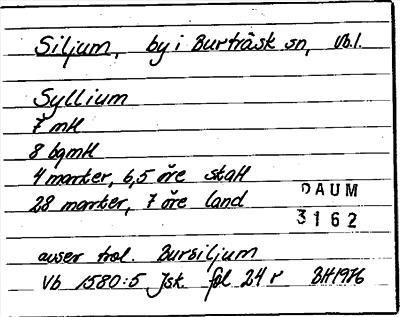 Siljum, by i Burträsk sn, Vb.l.
Syllium
7 mtl
8 bgmtl
4 markter, 6,5 öre skatt
28 markter, 7 öre land
DAUM
3162
avser trol. Bursiljum
Vb 1580:5 Jsk. fol 24 r BH 1976